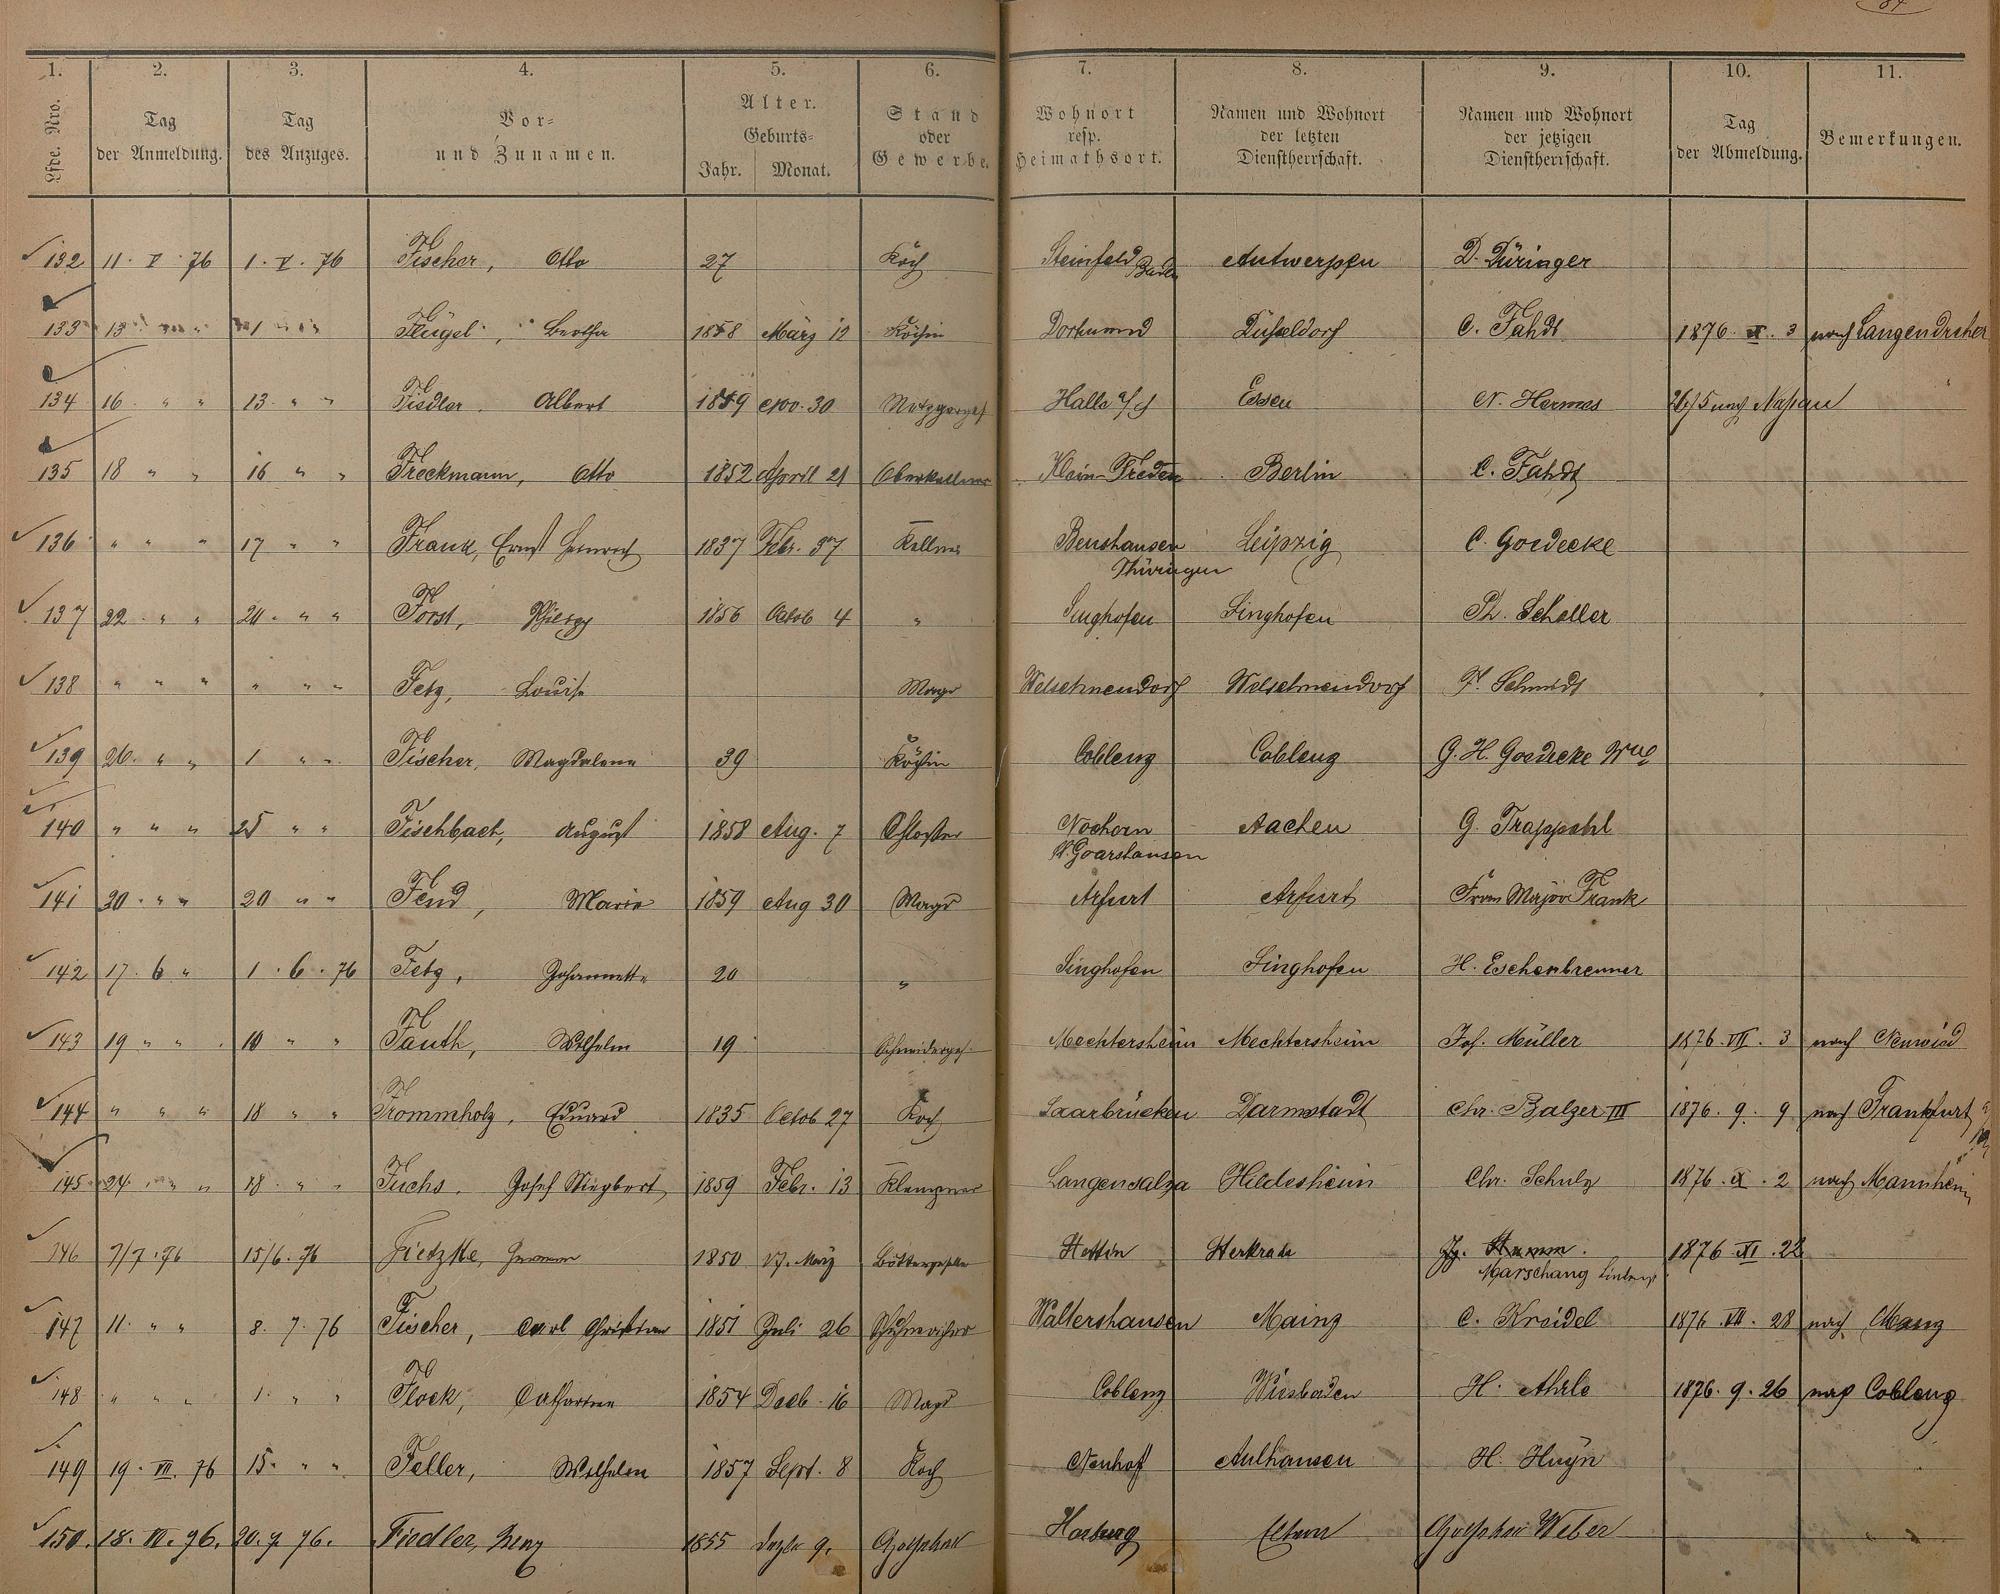 84
1. 2. 3. 4. 5. 6. 7. 8. 9. 10. 11.
Lfde. Nro. Tag der Anmeldung. Tag des Anzuges. Vor- und Zunamen. Alter. Geburts- Jahr. Monat. Stand oder Gewerbe. Wohnort resp. Heimathsort. Namen und Wohnort der letzten Dienstherrschaft. Namen und Wohnort der jetzigen Dienstherrschaft. Tag der Abmeldung. Bemerkungen.
132 11. V. 76 1. V. 76 Fischer, Otto 27 Koch Steinfeld Baden Antwerpen D. Düringer
133 13 " " 1 " " Flügel, Bertha 1858 März 12 Köchin Dortmund Düsseldorf C. Fahdt 1876. X. 3 nach Langendreher
134 16. " " 13. " " Fiedler. Albert 1859 Nov. 30 Metzgerges Halle a/S Essen N. Hermes 26/5 nach Nassau
135 18 " " 16 " " Freckmann, Otto 1852 April 21 Oberkellner Klein-Freden Berlin C. Fahdt
136 " " " 17 " " Frank, Ernst Heinrich 1837 Febr. Kellner Benshausen Thüringen Leipzig C. Goedecke
137 22. " " 20. " " Forst, Philipp 1856 Octob 4 " Singhofen Singhofen Ph. Scholler
138 " " " " " " Fetz, Louise Magd Welschnendorf Welschnendorf F. Schmidt
139 26. " " 1 " " Fischer, Magdalena 39 Köchin Coblenz Coblenz G. H. Goedecke Wwe
140 " " " 25 " " Fischbach, August 1858 Aug. 7 Schlosser Nochern St. Goarshausen Aachen G. Trappehl
141 20. " " 20 " " Fend, Maria 1859 Aug 30 Magd Arfurt Arfurt Frau Major Frank
142 17. 6 " 1. 6. 76 Fetz, Johannette 20 " Singhofen Singhofen H. Eschenbrenner
143 19 " " 10 " " Fauth, Wilhelm 19 Schneiderges. Mechtersheim Mechtersheim Jos. Müller 1876. VII. 3 nach Neuwied
144 " " " 18 " " Frommholz, Eduard 1835 Octob 27 Koch Saarbrücken Darmstadt Chr. Balzer III 1876. 9. 9 nach Frankfurt
145 24. " " 18 " " Fuchs. Josef Siegbert 1859 Febr. 13 Klempner Langensalza Hildesheim Chr. Schulz 1876. IX. 2 nach Mannheim
146 7/7. 76 15/6. 76 Fietzke, Hermann 1850 17. März Böttgergeselle Stettin Sterkrade Jg. Hamm. Marschang 1876 XI. 22
147 11. " " 8. 7. 76 Fischer, Carl Christian 1851 Juli 26 Schuhmacher Waltershausen Mainz C. Kreidel 1876. VII. 28 nach Mainz
148 " " " 1. " " Flock, Catharina 1854 Dezb. 16 Magd Coblenz Wiesbaden H. Ahrle 1876. 9. 26 nach Coblenz
149 19. VII. 76 15. " " Feller, Wilhelm 1857 Sept. 8 Koch Neuhof Aulhausen H. Huyn
150. 18. VII. 76. 20. 7. 76. Fiedler, Franz 1855 Dezbr 9. Harburg Eltern Weber